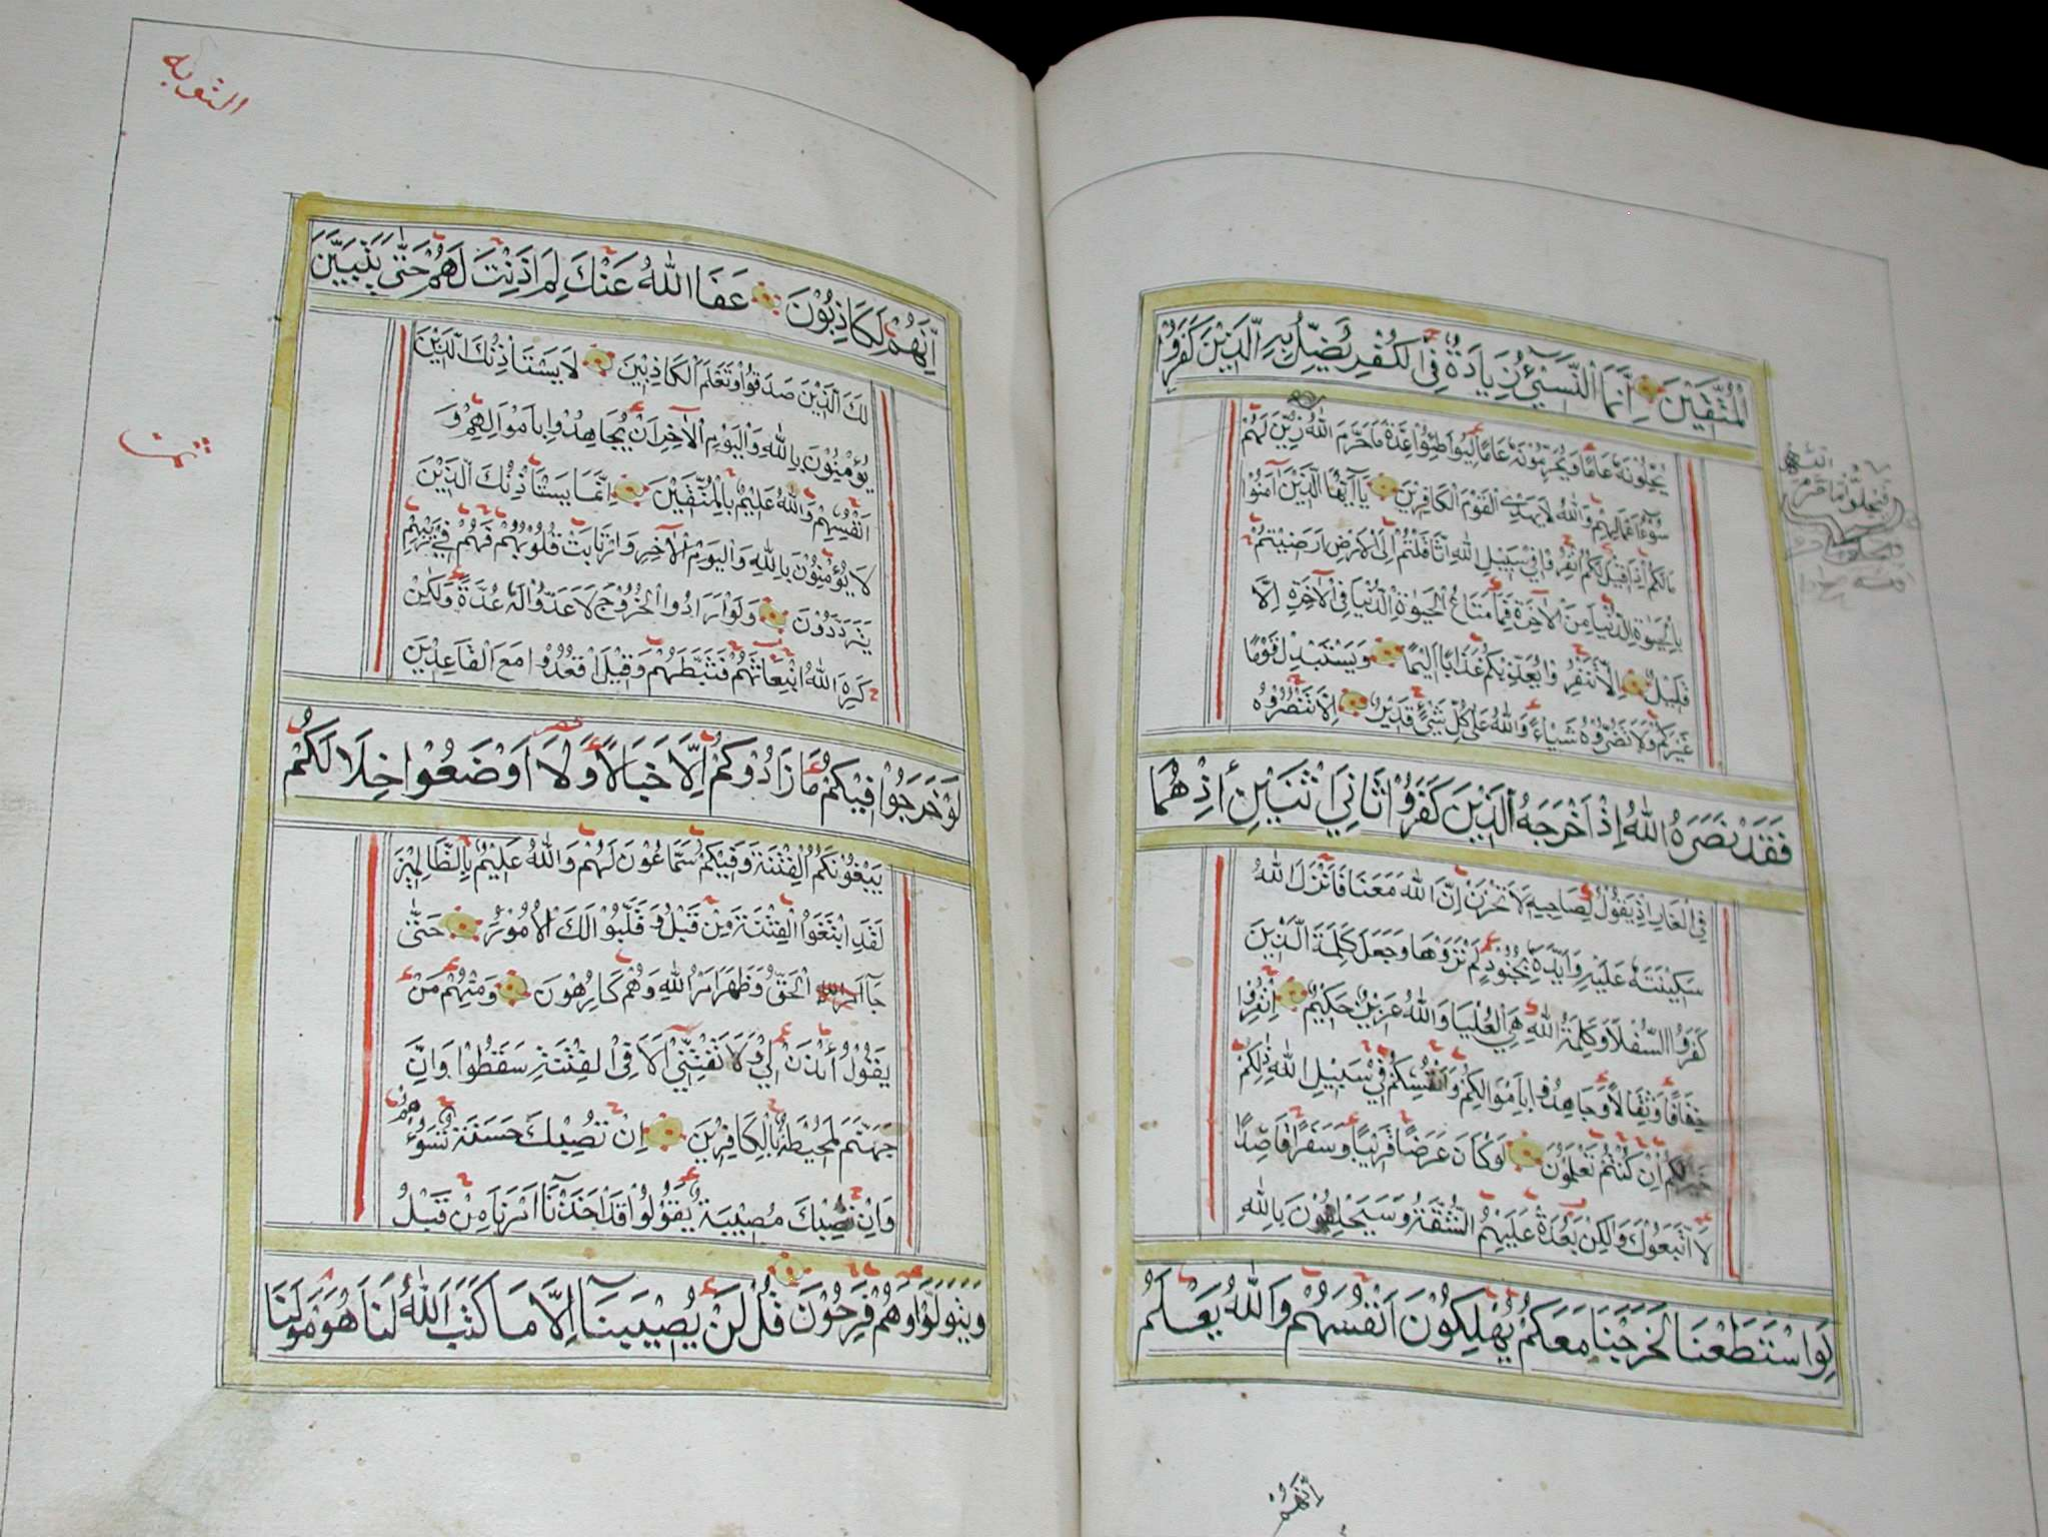 الْمُتَّقِيْنَ اِنَّمَا النَّسِيْٓءُ زِيَادَةٌ فِى الْكُفْرِ يُضَلُّ بِهِ الَّذِيْنَ كَفَرُوْا
يُحِلُّوْنَهُ عَامًا وَيُحَرِّمُوْنَهُ عَامًا لِيُوَاطِئُوْا عِدَّةَ مَا حَرَّمَ اللّٰهُ زُيِّنَ لَهُمْ
سُوْٓءُ اَعْمَالِهِمْ وَاللّٰهُ لَا يَهْدِى الْقَوْمَ الْكَافِرِيْنَ يَآ اَيُّهَا الَّذِيْنَ اٰمَنُوْا
مَالَكُمْ اِذَا قِيْلَ لَكُمُ انْفِرُوْا فِى سَبِيْلِ اللّٰهِ اثَّاقَلْتُمْ اِلَى الْاَرْضِ اَرَضِيْتُمْ
بِالْحَيٰوةِ الدُّنْيَا مِنَ الْاٰخِرَةِ فَمَا مَتَاعُ الْحَيٰوةِ الدُّنْيَا فِى الْاٰخِرَةِ اِلَّا
قَلِيْلٌ اِلَّا تَنْفِرُوْا يُعَذِّبْكُمْ عَذَابًا اَلِيْمًا وَيَسْتَبْدِلْ قَوْمًا
غَيْرَكُمْ وَلَا تَضُرُّوْهُ شَيْاءً وَاللّٰهُ عَلٰى كُلِّ شَيْءٍ قَدِيْرٌ اِلَّا تَنْصُرُوْهُ
فَقَدْ نَصَرَهُ اللّٰهُ اِذْ اَخْرَجَهُ الَّذِيْنَ كَفَرُوْا ثَانِيَ اثْنَيْنِ اِذْ هُمَا
فِى الْغَارِ اِذْ يَقُوْلُ لِصَاحِبِهِ لَا تَحْزَنْ اِنَّ اللّٰهَ مَعَنَا فَاَنْزَلَ اللّٰهُ
سَكِيْنَتَهُ عَلَيْهِ وَاَيَّدَهُ بِجُنُوْدٍ لَمْ تَرَوْهَا وَجَعَلَ كَلِمَةَ الَّذِيْنَ
كَفَرُوا السُّفْلَا وَكَلِمَةُ اللّٰهِ هِيَ الْعُلْيَا وَاللّٰهُ عَزِيْزٌ حَكِيْمٌ اِنْفِرُوْا
خِفَافًا وَثِقَالًا وَجَاهِدُوْا بِاَمْوَالِكُمْ وَاَنْفُسِكُمْ فِيْ سَبِيْلِ اللّٰهِ ذٰلِكُمْ
خَيْرٌ لَكُمْ اِنْ كُنْتُمْ تَعْلَمُوْنَ لَوْ كَانَ عَرَضًا قَرِيْبًا وَسَفَرًا قَاصِدًا
لَا اتَّبَعُوْكَ وَلٰكِنْ بَعُدَتْ عَلَيْهِمُ الشُّقَّةُ وَسَيَحْلِفُوْنَ بِاللّٰهِ
لَوِاسْتَطَعْنَا لَخَرَجْنَا مَعَكُمْ يُهْلِكُوْنَ اَنْفُسَهُمْ وَاللّٰهُ يَعْلَمُ
اِنَّهُمْ
التوبه
اِنَّهُمْ لَكَاذِبُوْنَ عَفَا اللّٰهُ عَنْكَ لِمَ اَذِنْتَ لَهُمْ حَتّٰى يَتَبَيَّنَ
لَكَ الَّذِيْنَ صَدَقُوْا وَتَعْلَمَ الْكَاذِبِيْنَ لَا يَسْتَاْذِنُكَ الَّذِيْنَ
يُؤْمِنُوْنَ بِاللّٰهِ وَالْيَوْمِ الْاٰخِرِ اَنْ يُجَاهِدُوْا بِاَمْوَالِهِمْ وَ
اَنْفُسِهِمْ وَاللّٰهُ عَلِيْمٌ بِالْمُتَّقِيْنَ اِنَّمَا يَسْتَاْذِنُكَ الَّذِيْنَ
لَا يُؤْمِنُوْنَ بِاللّٰهِ وَالْيَوْمِ الْاٰخِرِ وَارْتَابَتْ قُلُوْبُهُمْ فَهُمْ فِيْ رَيْبِهِمْ
يَتَرَدَّدُوْنَ وَلَوْ اَرَادُوا الْخُرُوْجَ لَاَعَدُّوْا لَهُ عُدَّةً وَلٰكِنْ
كَرِهَ اللّٰهُ انْبِعَاثَهُمْ فَثَبَّطَهُمْ وَقِيْلَ اقْعُدُوْا مَعَ الْقَاعِدِيْنَ
لَوْ خَرَجُوْا فِيْكُمْ مَا زَادُوْكُمْ اِلَّا خَبَالًا وَلَا اَوْضَعُوْا خِلَالَكُمْ
يَبْغُوْنَكُمُ الْفِتْنَةَ وَفِيْكُمْ سَمَّاعُوْنَ لَهُمْ وَاللّٰهُ عَلِيْمٌ بِالظَّالِمِيْنَ
لَقَدِ ابْتَغَوُا الْفِتْنَةَ مِنْ قَبْلُ وَقَلَّبُوْا لَكَ الْاُمُوْرَ حَتّٰى
جَآءَ الْحَقُّ وَظَهَرَ اَمْرُ اللّٰهِ وَهُمْ كَارِهُوْنَ وَمِنْهُمْ مَنْ
يَقُوْلُ ائْذَنْ لِيْ وَلَا تَفْتِنِّيْ اَلَا فِى الْفِتْنَةِ سَقَطُوْا وَاِنَّ
جَهَنَّمَ لَمُحِيْطَةٌ بِالْكَافِرِيْنَ اِنْ تُصِبْكَ حَسَنَةٌ تَسُؤْهُمْ
وَاِنْ تُصِبْكَ مُصِيْبَةٌ يَقُوْلُوْا قَدْ اَخَذْنَا اَمْرَنَا مِنْ قَبْلُ
وَيَتَوَلَّوْا وَهُمْ فَرِحُوْنَ قُلْ لَنْ يُصِيْبَنَا اِلَّا مَا كَتَبَ اللّٰهُ لَنَا هُوَ مَوْلَنَا